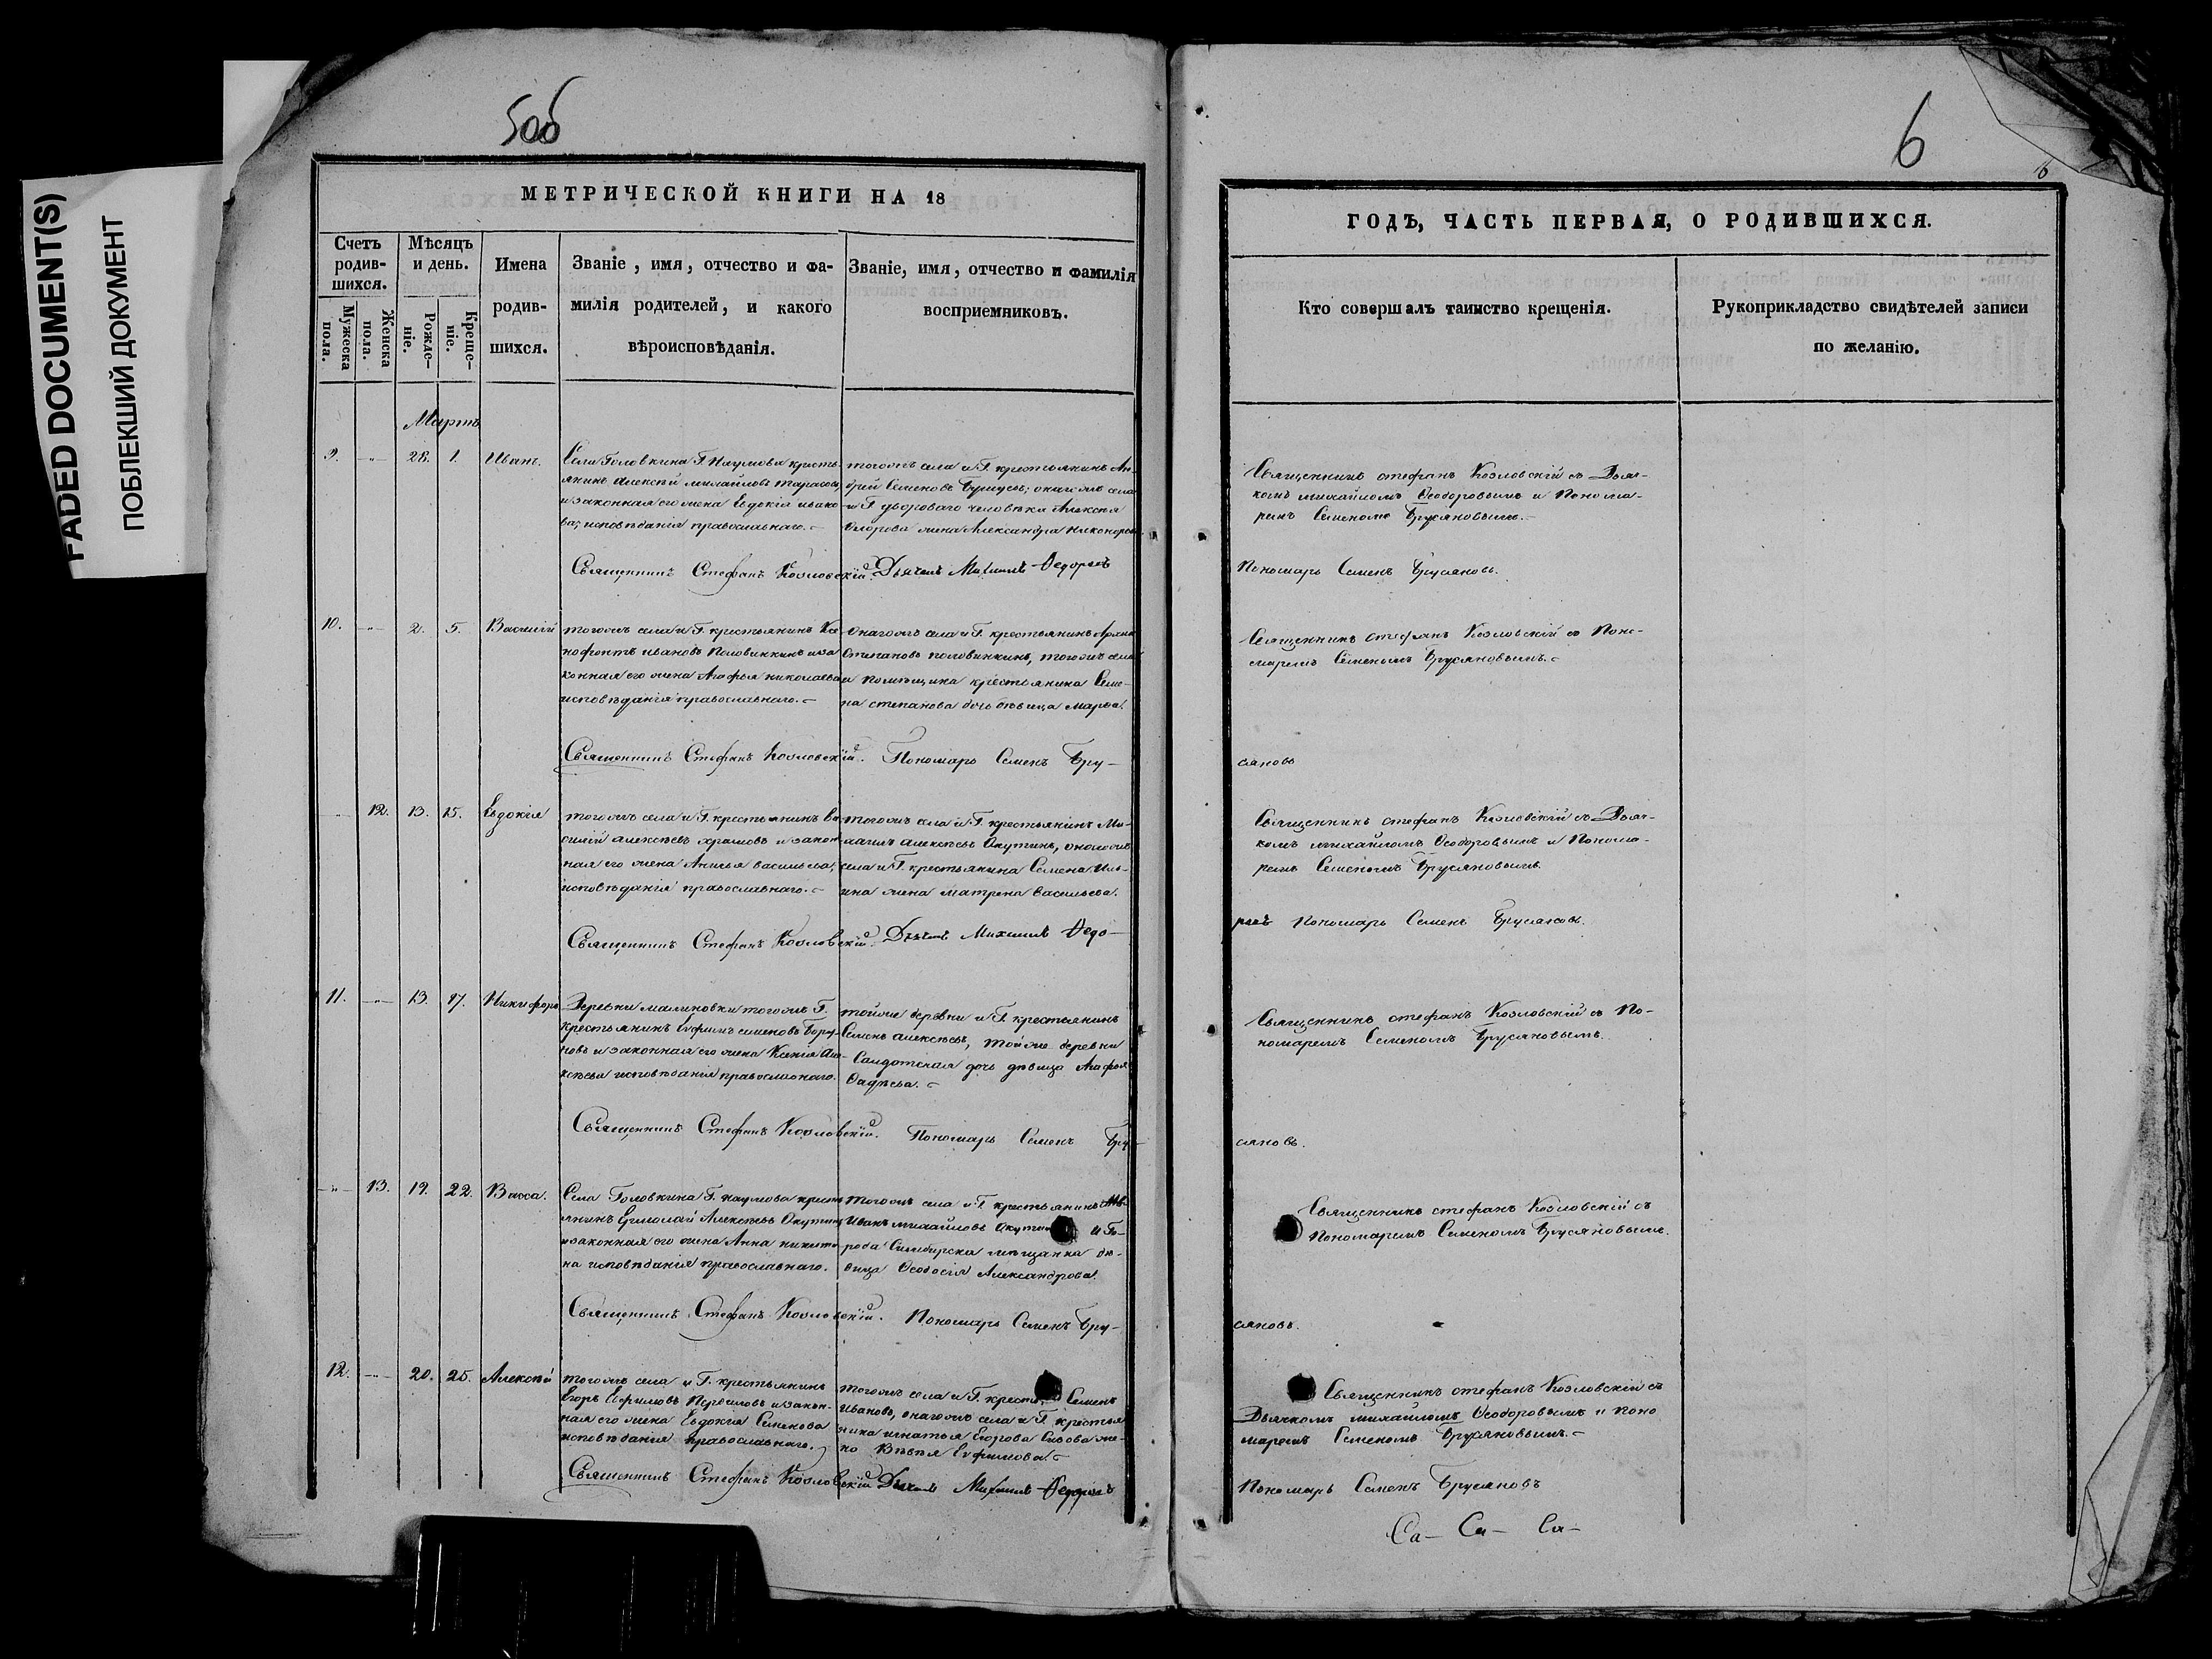 FADED DOCUMENT(S)
ПОБЛЕКШИЙ ДОКУМЕНТ
5об
МЕТРИЧЕСКОЙ КНИГИ НА 18
Счетъ родив-шихся.
Мужеска пола.
Женска пола.
Мѣсяцъ и день.
Рожде-ніе.
Креще-ніе.
Имена родив-шихся.
Званіе, имя, отчество и фа-
милія родителей, и какого
вѣроисповѣданія.
Званіе, имя, отчество и фамилія
восприемниковъ.
Мартъ
9. -"- 28. 1. Иванъ.
Села Головкина Г. Наумова кресть-
янинъ Алексѣй Михайловъ Тарасовъ,
и законная его жена Евдокія Ивано-
ва, исповѣданія православнаго.
тогожъ села и Г. крестьянинъ Ан-
дрей Семеновъ онагожъ села
и Г. двороваго человѣка Алексѣя
жена Александра Никонорова
Священникъ Стефанъ Козловскій. Дьячекъ Михаилъ Ѳедоровъ
10. -"- 2. 5. Василій
тогожъ села и Г. крестьянинъ Ксе-
нофонтъ Ивановъ Половинкинъ и за
конная его жена Агафья Николаева
исповѣданія православнаго.
онагожъ села и Г. крестьянинъ
Степановъ Половинкинъ, тогожъ села
и помѣщика крестьянина Семе-
на Степанова дочь дѣвица Марья.
Священникъ Стефанъ Козловскій. Пономарь Семенъ Бру-
-"- 12. 13. 15. Евдокія
тогожъ села и Г. крестьянинъ Ва-
силій Алексѣевъ Храмовъ и закон-
ная его жена Анисья Васильева,
исповѣданія православнаго.
тогожъ села и Г. крестьянинъ Ми-
хаилъ Алексѣевъ Окутинъ, оногожъ
села и Г. крестьянина Семена Иль-
ина жена Матрена Васильева.
Священникъ Стефанъ Козловскій. Дьячекъ Михаилъ Ѳедо-
11. -"- 13. 17. Никифоръ
Деревни Малиновки тогожъ Г.
крестьянинъ Ефимъ Семеновъ
и законная его жена Ксенія Але-
ксѣева исповѣданія православнаго.
тойже деревни и Г. крестьянинъ
Семенъ Алексѣевъ, тойже деревни
Солдатская дочь дѣвица Агафья
Ѳадѣева.
Священникъ Стефанъ Козловскій. Пономарь Семенъ Бру-
-"- 13. 19. 22. Васса.
Села Головкина Г. Наумова кресть
янинъ Ермолай Алексѣевъ Окутинъ
и законная его жена Анна Никити-
на исповѣданія православнаго.
тогожъ села и Г. крестьянинъ
Иванъ Михайловъ Окутинъ и Го-
рода Симбирска мещанка дѣ-
вица Ѳеодосія Александрова.
Священникъ Стефанъ Козловскій. Пономарь Семенъ Бру-
12. -"- 20. 25. Алексѣй
тогожъ села и Г. крестьянинъ
Егоръ Ефимовъ и закон-
ная его жена Евдокія Семенова
исповѣданія православнаго.
тогожъ села и Г. крестья Семенъ
Ивановъ, онагожъ села и Г. крестья
нина Игнатья Егорова Сизова же-
на Ефимова.
Священникъ Стефанъ Козловскій Дьячекъ Михаилъ Ѳедоровъ
6
ГОДЪ, ЧАСТЬ ПЕРВАЯ, О РОДИВШИХСЯ.
Кто совершалъ таинство крещенія.
Рукоприкладство свидѣтелей записи
по желанію.
Священникъ Стефанъ Козловскій съ Дьяч-
комъ Михайломъ Ѳеодоровымъ и Понома-
ремъ Семеномъ Брусяновымъ.
Пономарь Семенъ Брусяновъ.
Священникъ Стефанъ Козловскій съ Поно-
маремъ Семеномъ Брусяновымъ.
сяновъ
Священникъ Стефанъ Козловскій съ Дьяч-
комъ Михайломъ Ѳеодоровымъ и Понома-
ремъ Семеномъ Брусяновымъ.
ровъ Пономарь Семенъ Брусяновъ.
Священникъ Стефанъ Козловскій съ По-
номаремъ Семеномъ Брусяновымъ.
сяновъ.
Священникъ Стефанъ Козловскій съ
Пономаремъ Семеномъ Брусяновымъ.
сяновъ.
Священникъ Стефанъ Козловскій съ
Дьячкомъ Михайломъ Ѳеодоровымъ и Поно
маремъ Семеномъ Брусяновымъ.
Пономарь Семенъ Брусяновъ
Са- Са- Са-